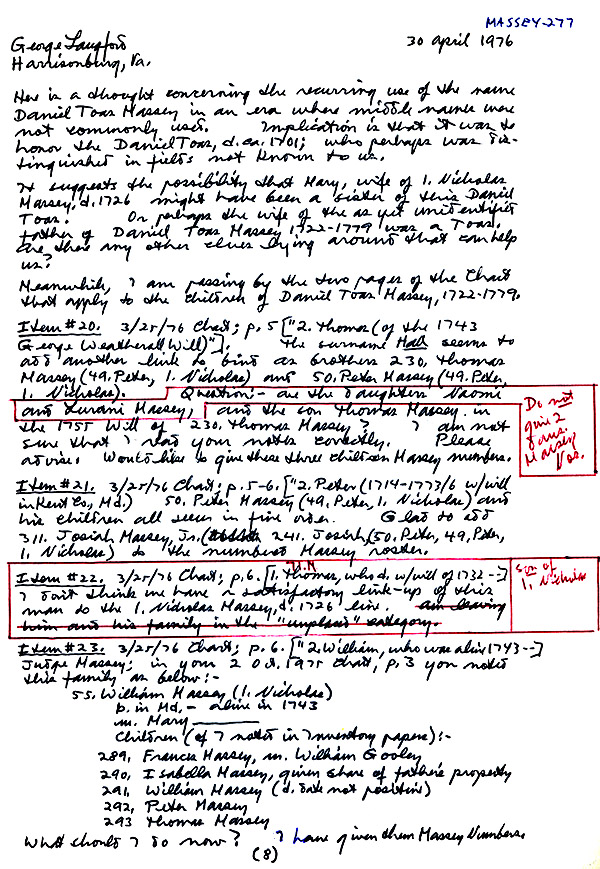 MASSEY-277
George Langford 30 April 1976
Harrisonburg, Va.
Here is a thought concerning the recurring use of the name
Daniel Toas Massey in an era where middle names were
not commonly used. Implication is that it was to
honor the Daniel Toas, d. ca. 1701; who perhaps was dis-
tinguished in fields not known to us.
It suggests the possibility that Mary, wife of 1. Nicholas
Massey, d. 1726 might have been a sister of this Daniel
Toas. Or perhaps the wife of the as yet unidentified
father of Daniel Toas Massey 1722-1779 was a Toas.
Are there any other clues lying around that can help
us?
Meanwhile, I am passing by the two pages of the Chart
that apply to the children of Daniel Toas Massey, 1722-1779.
Item #20. 3/25/76 Chart; p. 5 ["2. Thomas (of the 1743
George Weatherall Will)"]. The surname Hall seems to
add another link to bind as brothers 230. Thomas
Massey (49. Peter, 1. Nicholas) and 50. Peter Massey (49. Peter,
1. Nicholas). Question:- are the daughters Naomi
and Lurani Massey, and the son Thomas Massey in
the 1755 Will of 230. Thomas Massey? I am not
sure that I read your notes correctly. Please
advise. Would like to give these three children Massey numbers.
Do not
give 2
daus.
Massey
Nos.
Item #21. 3/25/76 Chart; p. 5-6. ["2. Peter (1714-1773/6 w/will
in Kent Co., Md.) 50. Peter Massey (49. Peter, 1. Nicholas) and
his children all seem in fine order. Glad to add
311. Josiah Massey, Jr. (241. Josiah, 50. Peter, 49. Peter,
1. Nicholas) to the numbered Massey roster.
Item #22. 3/25/76 Chart; p. 6. [1. Thomas, who d. w/will of 1732--]
I don't think we have a satisfactory link-up of this
man to the 1. Nicholas Massey, d. 1726 line. am leaving
him and his family in the "unplaced" category.
son of
1. Nicholas
Item #23. 3/25/76 Chart; p. 6. ["2. William, who was alive 1743--]
Judge Massey; in your 2 Oct. 1975 Chart, p. 3 you noted
this family as below:-
55. William Massey (1. Nicholas)
b. in Md. - alive in 1743
m. Mary
Children (of I noted in Inventory papers):-
289. Frances Massey, m. William Gooley
290. Isabella Massey, given share of father's property
291. William Massey (d. date not positive)
292. Peter Massey
293 Thomas Massey
What should I do now? I have given them Massey Numbers.
(8)